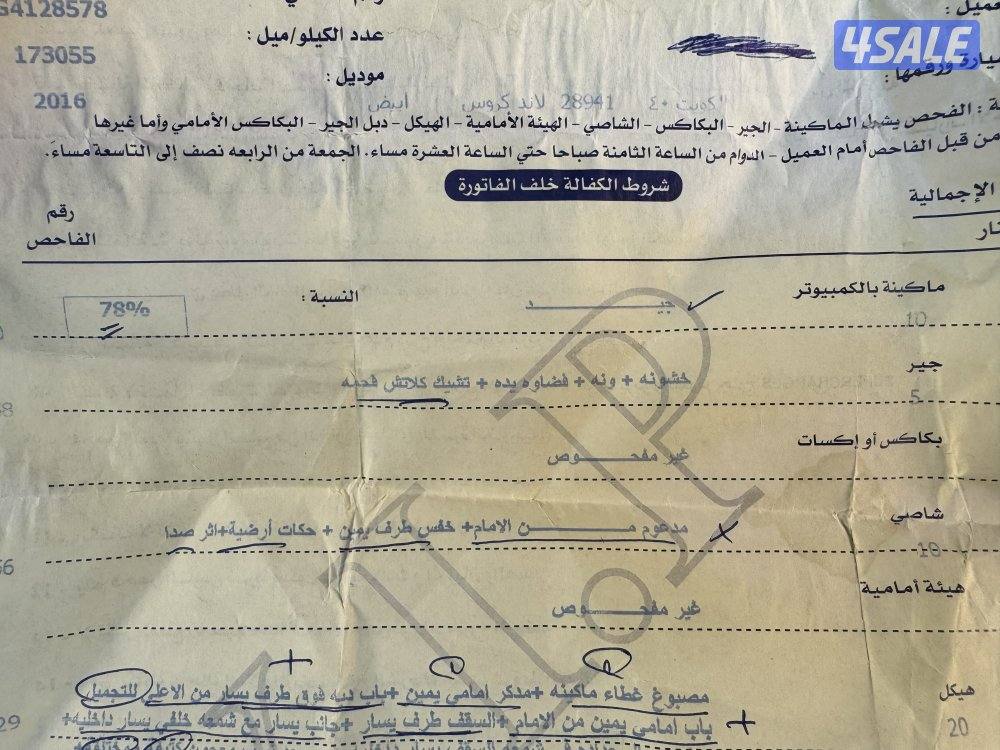 عميل :
G4128578
4SALE
عدد الكيلو/ميل :
173055
سيارة ورقمها :
موديل :
2016
كويت ٤٠ 28941 لاند كروس ابيض
ة : الفحص يشمل الماكينة - الجير - البكاكس - الشاصي - الهيئة الأمامية - الهيكل - دبل الجير - البكاكس الأمامي وأما غيرها
من قبل الفاحص أمام العميل - الدوام من الساعة الثامنة صباحا حتي الساعة العشرة مساء. الجمعة من الرابعه نصف إلى التاسعة مساءً.
شروط الكفالة خلف الفاتورة
الإجمالية
رقم
الفاحص
ماكينة بالكمبيوتر
جيد
النسبة :
78%
10
جير
خشونه + ونه + فضاوه يده + تشيك كلاتش فحمه
5
بكاكس أو إكسات
غير مفحوص
شاصي
مدعوم من الامام+ خفس طرف يمين + حكات أرضية+اثر صدا
10
هيئة أمامية
غير مفحوص
هيكل
مصبوغ غطاء ماكينه +مدكر امامي يمين +باب دبه فوق طرف يسار من الاعلي للتجميل
20
باب امامي يمين من الامام +السقف طرف يسار +جانب يسار مع شمعه خلفي يسار داخليه+
29